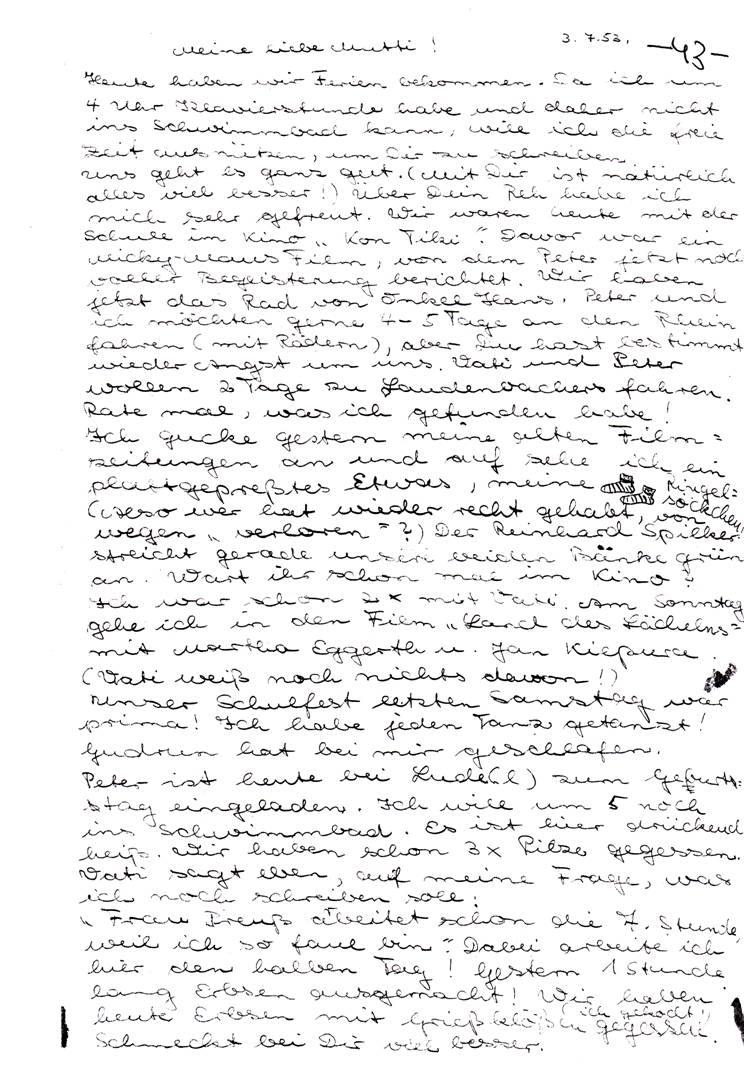 3.7.53. -43-
Meine liebe Mutti!
Heute haben wir Ferien bekommen. Da ich um
4 Uhr Klavierstunde habe und daher nicht
ins Schwimmbad kann, will ich die freie
Zeit ausnützen, um Dir zu schreiben.
Uns geht es ganz gut. (Mit Dir ist natürlich
alles viel besser!) Über Dein Reh habe ich
mich sehr gefreut. Wir waren heute mit der
Schule im Kino „Kon Tiki". Davor war ein
Micky-Maus Film, von dem Peter jetzt noch
voller Begeisterung berichtet. Wir haben
jetzt das Rad von Onkel Hans. Peter und
ich möchten gerne 4-5 Tage an den Rhein
fahren (mit Rädern), aber Du hast bestimmt
wieder Angst um uns. Vati und Peter
wollen 2 Tage zu Laudenbachers fahren.
Rate mal, was ich gefunden habe!
Ich gucke gestern meine alten Film=
zeitungen an und auf sehe ich ein
plattgepreßtes Etwas, meine Ringel=
söckchen!
(Also wer hat wieder recht gehabt, von
wegen „verloren"?) Der Reinhard Spilker
streicht gerade unsere beiden Bänke grün
an. Wart ihr schon mal im Kino?
Ich war schon 2x mit Vati. Am Sonntag
gehe ich in den Film „Land des Lächelns"
mit Martha Eggerth u. Jan Kiepura.
(Vati weiß noch nichts davon!)
Unser Schulfest letzten Samstag war
prima! Ich habe jeden Tanz getanzt!
Gudrun hat bei mir geschlafen.
Peter ist heute bei Lude(l) zum Geburts=
stag eingeladen. Ich will um 5 noch
ins Schwimmbad. Es ist hier drückend
heiß. Wir haben schon 3x Pilze gegessen.
Vati sagt eben, auf meine Frage, was
ich noch schreiben soll:
„Frau Preuß abeitet schon die 7. Stunde,
weil ich so faul bin". Dabei arbeite ich
hier den halben Tag! Gestern 1 Stunde
lang Erbsen ausgemacht! Wir haben
heute Erbsen mit Grießklößen (ich gekocht!) gegessen.
Schmeckt bei Dir viel besser.